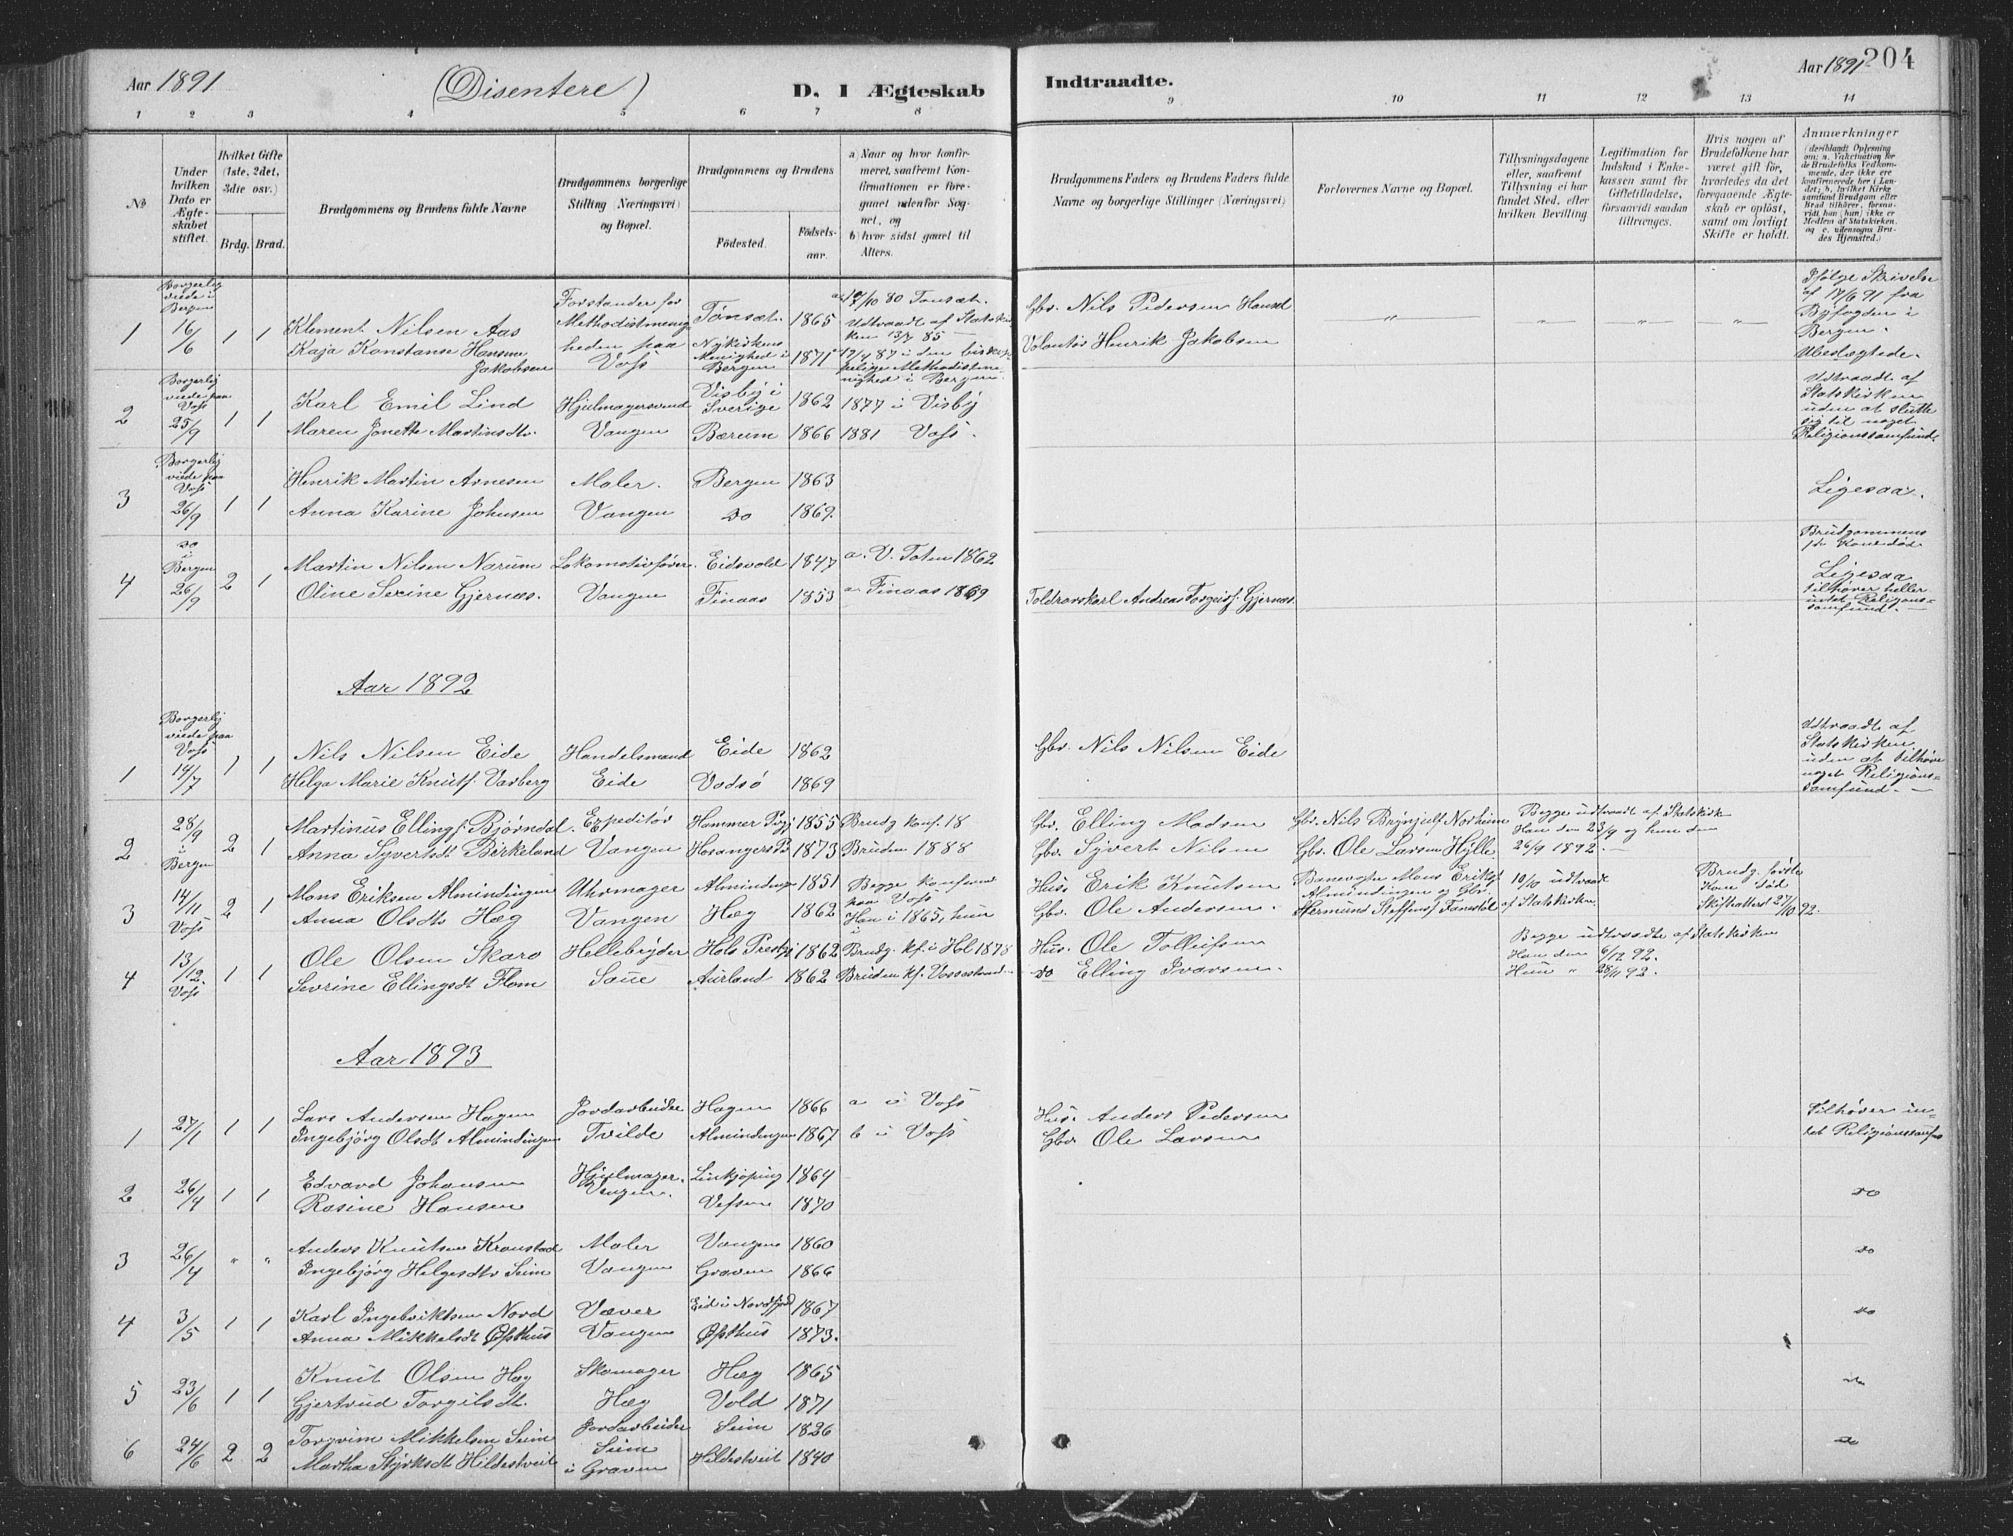 Aar 1891 (Disentere) D. I Ægteskab Indtraadte. Aar 1891 204
1 2 3 4 5 6 7 8 9 10 11 12 13 14
No
Under hvilken Dato er Ægteskabet stiftet.
Hvilket Gifte (1ste, 2det, 3die osv.)
Brdg. Brud.
Brudgommens og Brudens fulde Navne
Brudgommens borgerlige Stilling (Næringsvei) og Bopæl.
Brudgommens og Brudens
Fødested. Fødselsaar.
a) Naar og hvor konfirmeret, saafremt Konfirmationen er foregaaet udenfor Sognet, og
b) hvor sidst gaaet til Alters.
Brudgommens Faders og Brudens Faders fulde Navne og borgerlige Stillinger (Næringsvei)
Forlovernes Navne og Bopæl.
Tillysningsdagene eller, saafremt Tillysning ei har fundet Sted, efter hvilken Bevilling
Legitimation for Indskud i Enkekassen samt for Giftetilladelse, forsaavidt saadan tiltrænges.
Hvis nogen af Brudefolkene har været gift før, hvorledes da det foregaaende Ægteskab er opløst, samt om lovligt Skifte er holdt.
Anmærkninger (deriblandt Oplysning om: a. Vakcination for de Brudefolks Vedkommende, der ikke ere konfirmerede her i Landet; b. hvilket Kirkesamfund Brudgom eller Brud tilhører, forsaavidt han (hun) ikke er Medlem af Statskirken, og c. udensogns Brudes Hjemsted.)
1 Borgerlig viede i Bergen 16/6 1 1 Klement Nilsen Aas Forstander for Methodistmenigheden paa Voss Tønsæt. 1865 a. 17/10 80 Tønsæt. Udtraadt af Statskirken 13/7 85 Gbr. Nils Pedersen Ifølge Skrivelse af 17/6 91 fra Byfogden i Bergen. Ubeslægtede.
Kaja Konstanse Hansine Jakobsen Nykirkens Menighed i Bergen 1871 17/4 87 i den biskoppelige Methodistmenighed i Bergen. Volontør Henrik Jakobsen
2 Borgerlig viede paa Voss 25/9 1 1 Karl Emil Lind Hjulmagersvend Visby i Sverige 1862 1877 i Visby Udtraadt af Statskirken uden at slutte sig til noget Religionssamfund.
Maren Jonette Martinsdtr. Vangen Bærum 1866 1881 Voss.
3 Borgerlig viede paa Voss 26/9 1 1 Henrik Martin Arnesen Maler. Bergen 1863 Ligesaa.
Anna Karine Johnsen Vangen do 1869.
4 do i Bergen 26/9 2 1 Martin Nilsen Narum Lokomotivfører. Eidsvold 1847 a. V. Toten 1862 Brudgommens 1ste Kone død. Ligesaa tilhører heller intet Religionssamfund.
Oline Serine Gjernæs. Vangen Finaas 1853 a. Finaas 1869 Andreas Gjernæs.
Aar 1892
1 Borgerlig viede paa Voss 14/7 1 1 Nils Nilsen Eide Handelsmand Eide 1862 Gbr. Nils Nilsen Eide Udtraadt af Statskirken uden at tilhøre noget Religionssamfund.
Helga Marie Knutsd. Varberg Eide Vadsø 1869
2 28/9 i Bergen 2 1 Martinus Ellings. Bjørndal. Expeditør Hammer Prgj 1855 Brudg konf. 18 Gbr. Elling Madsen Gbr. Nils Brynjulfs. Norheim Begge udtraadt af Statskirk. Han den 23/9 og hun den 26/9 1892.
Anna Syvertsdt Birkeland Vangen Hosangers P. 1873 Bruden 1888 Gbr. Syvert Nilsen Gbr. Ole Larsen Hylle
3 14/11 Voss 2 1 Mons Eriksen Almindingen Uhrmager Almindingen 1851 Begge konfirmd. paa Voss Huss Erik Knutsen Banevogter Mons Eriks. Almindingen og Gbr. 10/10 udtraadt af Statskirken. Brudg. første Kone død Skifteattest 27/10 92.
Anna Olsdt Hæg Vangen Hæg 1862 Han i 1865, hun i Gbr. Ole Andersen.
4 13/12. Voss 1 1 Ole Olsen Skaro Hellebryder Hols Prestgj 1862 Brudg. kf. i Hol 1878 Hus. Ole Tolleifsen Begge udtraadte af Statskirken Han den 6/12 92. Hun " 28/11 92.
Sevrine Ellingsdt Flom Saue Aurland 1862 Bruden kf. Vossestrand Do Elling Ivarsen.
Aar 1893
1 27/1 1 1 Lars Andersen Hagen Jordarbeider Hagen 1866 a i Voss Hus. Anders Pedersen Tilhører intet Religionssamfund
Ingebjörg Olsdt Almindingen Tvilde Almindingen 1867 b i Voss Gbr Ole Larsen
2 26/4 1 1 Edvard Johansen Hjulmager. Linkjöping 1864 do
Rasine Hansen Vangen. Vefsen 1870
3 26/4 " " Anders Knutsen Kronstad Maler Vangen 1860 do
Ingebjörg Helgesdtr Seim Vangen Graven 1866
4 3/5 1 1 Karl Ingebriktsen Nord Væver Eid i Nordfjord 1867 do
Anna Mikkelsdt Opsthus Vangen Opsthus 1873.
5 23/6 1 1 Knut Olsen Hæg Skomager Hæg 1865 do
Gjertrud Torgilsdt. Hæg Vold 1871
6 24/6 2 2 Torgrim Mikkelsen Seim Jordarbeider Seim 1826 do
Martha Styrksdt Hildestveit Seim i Graven Hildestveit 1840